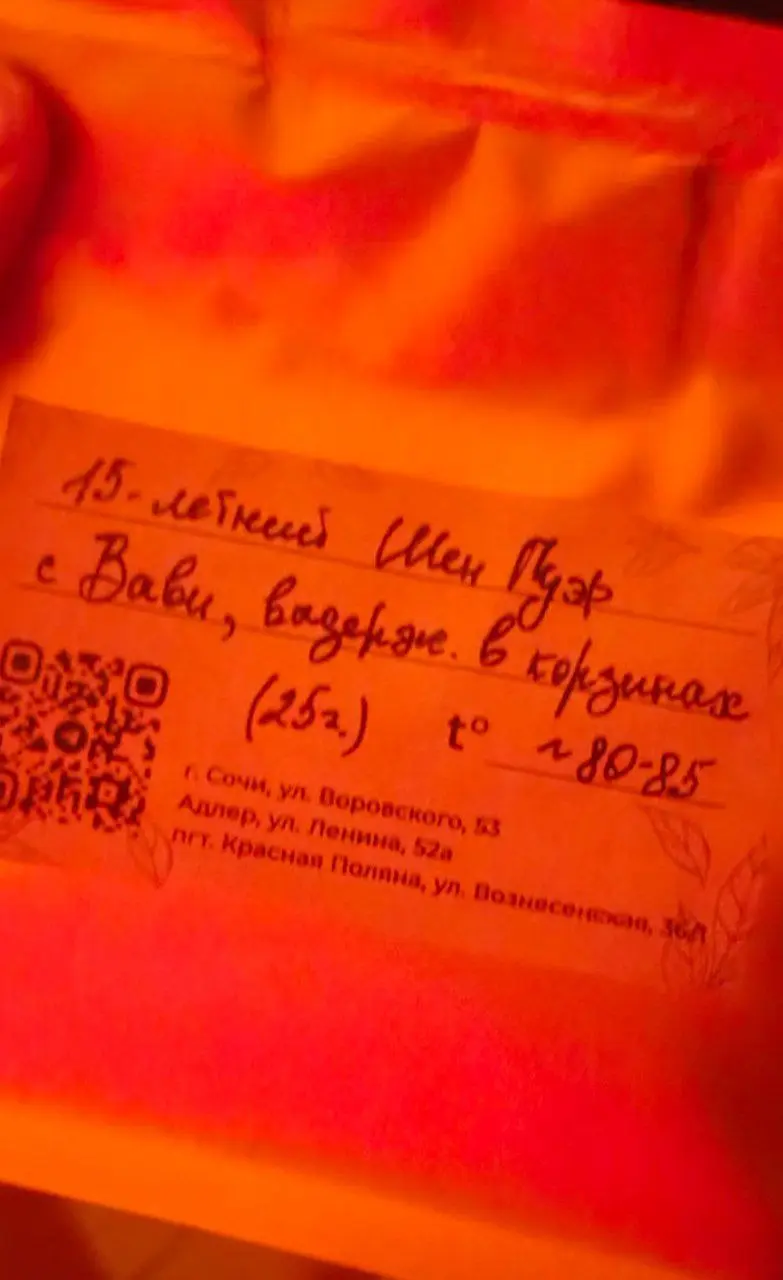 15-летний Шен Пуэр
с Вави, выдерж. в корзинах
(25г.) t° ~80-85
г. Сочи, ул. Воровского, 53
Адлер, ул. Ленина, 52а
пгт. Красная Поляна, ул. Вознесенская,